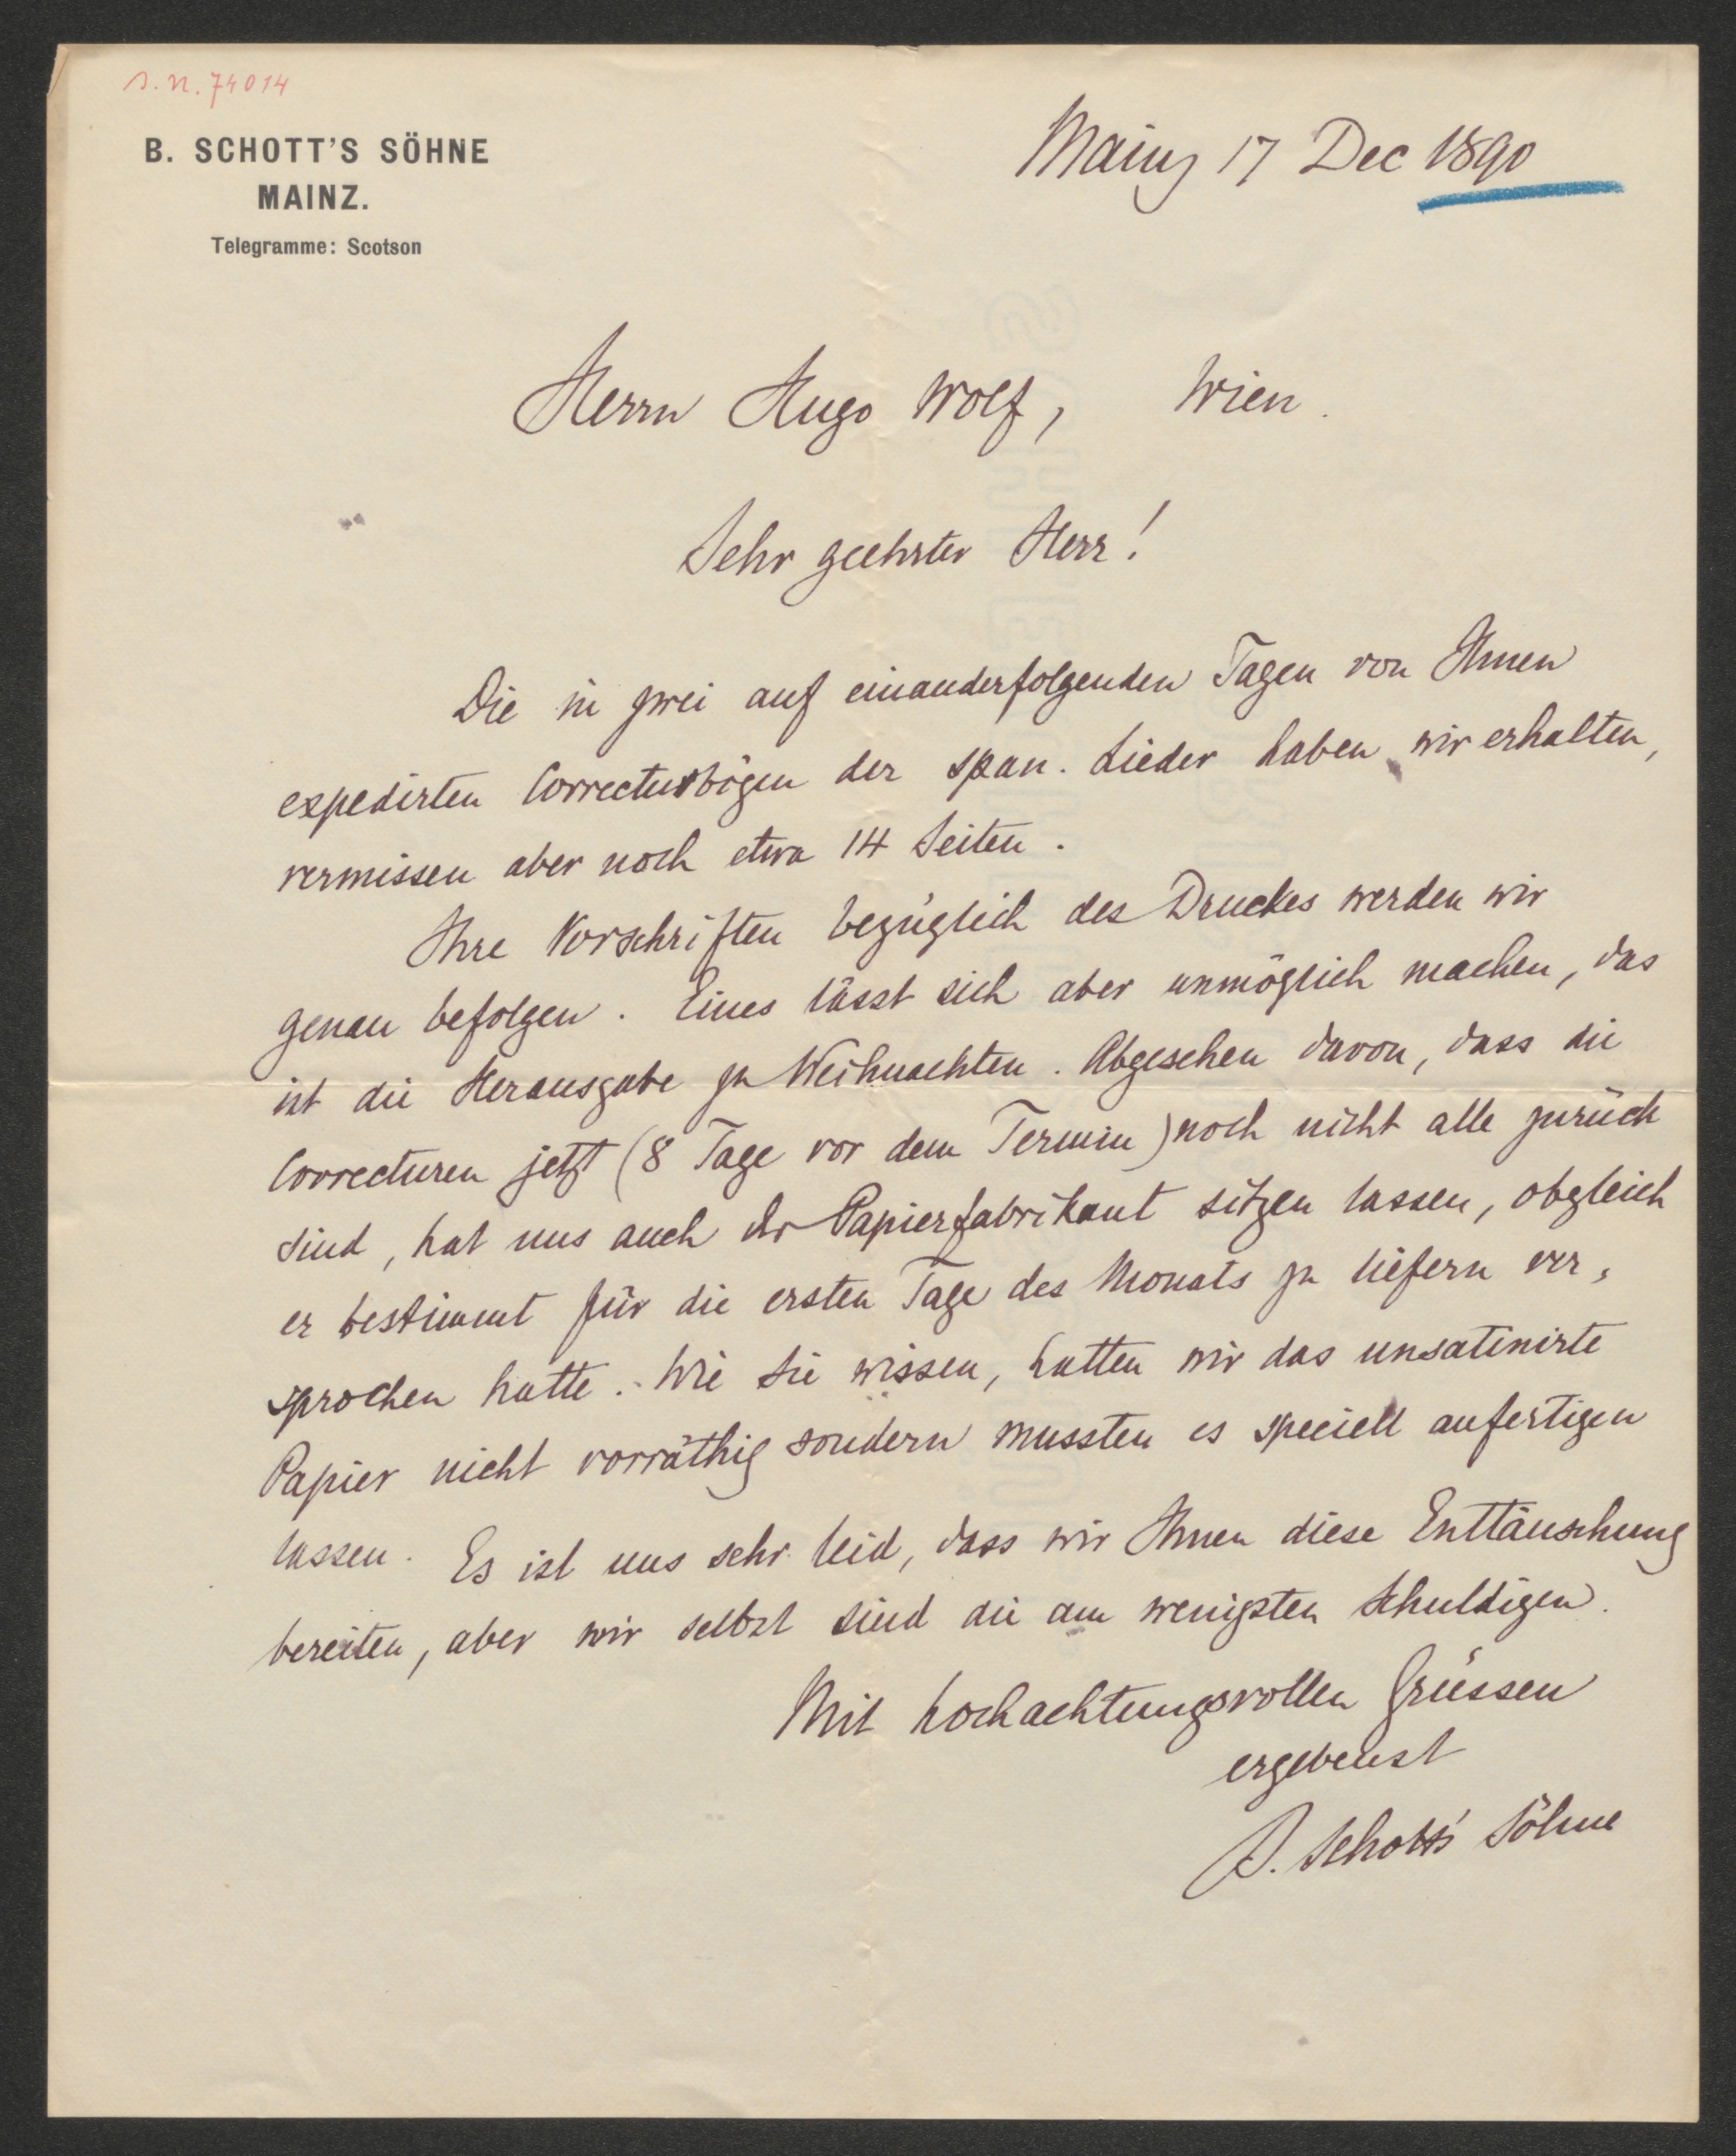 s.n. 74014
B. SCHOTT'S SÖHNE
MAINZ.
Telegramme: Scotson
Mainz 17 Dec 1890
Herrn Hugo Wolf, Wien.
Sehr geehrter Herr!
Die in zwei auf einanderfolgenden Tagen von Ihnen
expedirten Correcturbögen der span. Lieder haben wir erhalten,
vermissen aber noch etwa 14 Seiten.
Ihre Vorschriften bezüglich des Druckes werden wir
genau befolgen. Eines lässt sich aber unmöglich machen, das
ist die Herausgabe zu Weihnachten. Abgesehen davon, dass die
Correcturen jetzt (8 Tage vor dem Termin) noch nicht alle zurück
sind, hat uns auch der Papierfabrikant sitzen lassen, obgleich
er bestimmt für die ersten Tage des Monats zu liefern ver-
sprochen hatte. Wie Sie wissen, hatten wir das unsatinirte
Papier nicht vorräthig sondern mussten es speciell anfertigen
lassen. Es ist uns sehr leid, dass wir Ihnen diese Enttäuschung
bereiten, aber wir selbst sind die am wenigsten Schuldigen.
Mit hochachtungsvollen Grüssen
ergebenst
B. Schott's Söhne